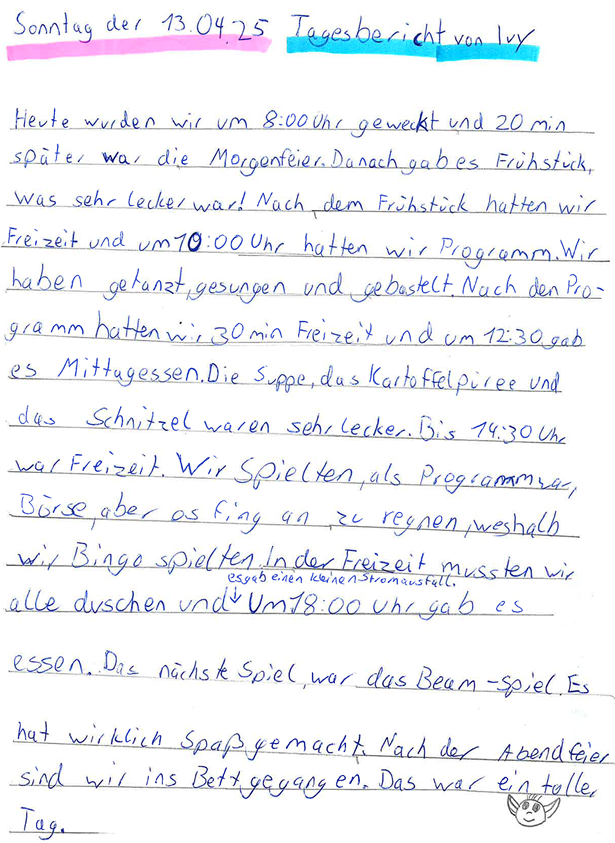 Sonntag der 13.04.25 Tagesbericht von Ivy
Heute wurden wir um 8:00 Uhr geweckt und 20 min
später war die Morgenfeier. Danach gab es Frühstück,
was sehr lecker war! Nach dem Frühstück hatten wir
Freizeit und um 10:00 Uhr hatten wir Programm. Wir
haben getanzt, gesungen und gebastelt. Nach den Pro-
gramm hatten wir 30 min Freizeit und um 12:30 gab
es Mittagessen. Die Suppe, das Kartoffelpüree und
das Schnitzel waren sehr lecker. Bis 14:30 Uhr
war Freizeit. Wir spielten, als Programm war,
Börse, aber es fing an, zu regnen, weshalb
wir Bingo spielten. In der Freizeit mussten wir
es gab einen kleinen Stromausfall.
alle duschen und ↓ Um 18:00 Uhr gab es
essen. Das nächste Spiel, war das Beam-Spiel. Es
hat wirklich Spaß gemacht. Nach der Abendfeier
sind wir ins Bett gegangen. Das war ein toller
Tag.